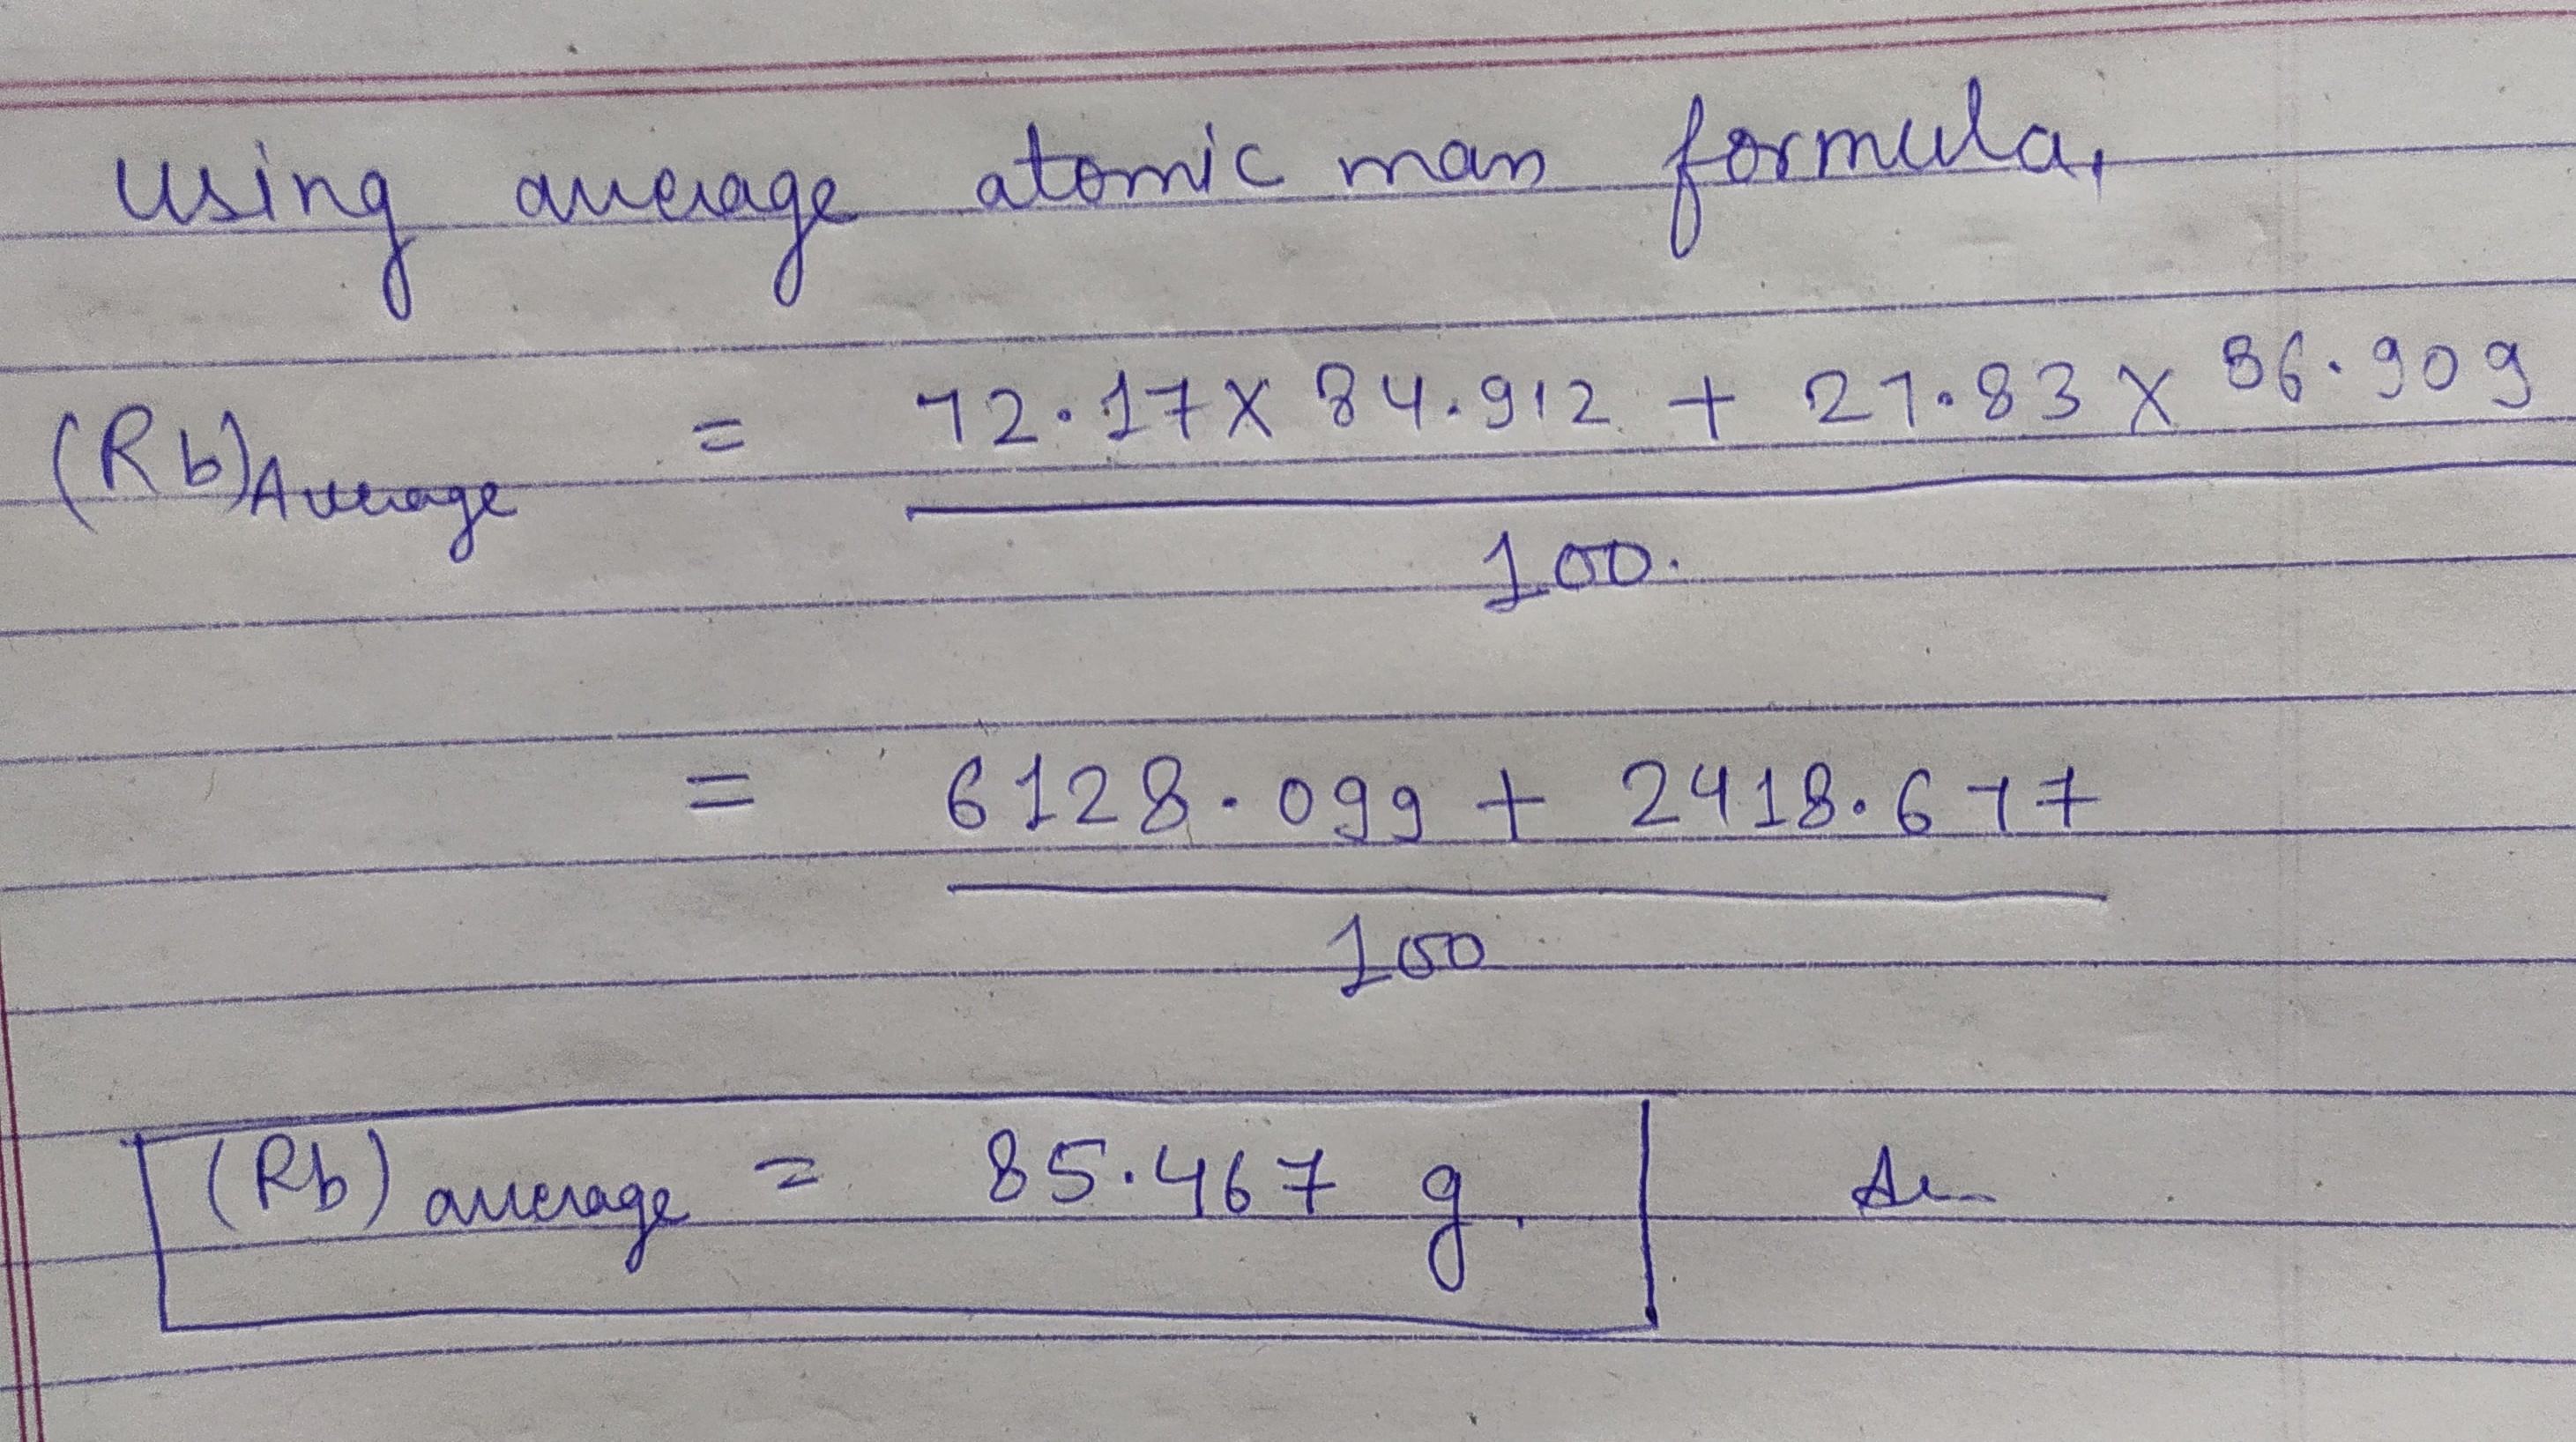 using average atomic mass formula,
(Rb)Average = 72.17 X 84.912 + 27.83 X 86.909
100.
= 6128.099 + 2418.677
100
(Rb) average = 85.467 g.